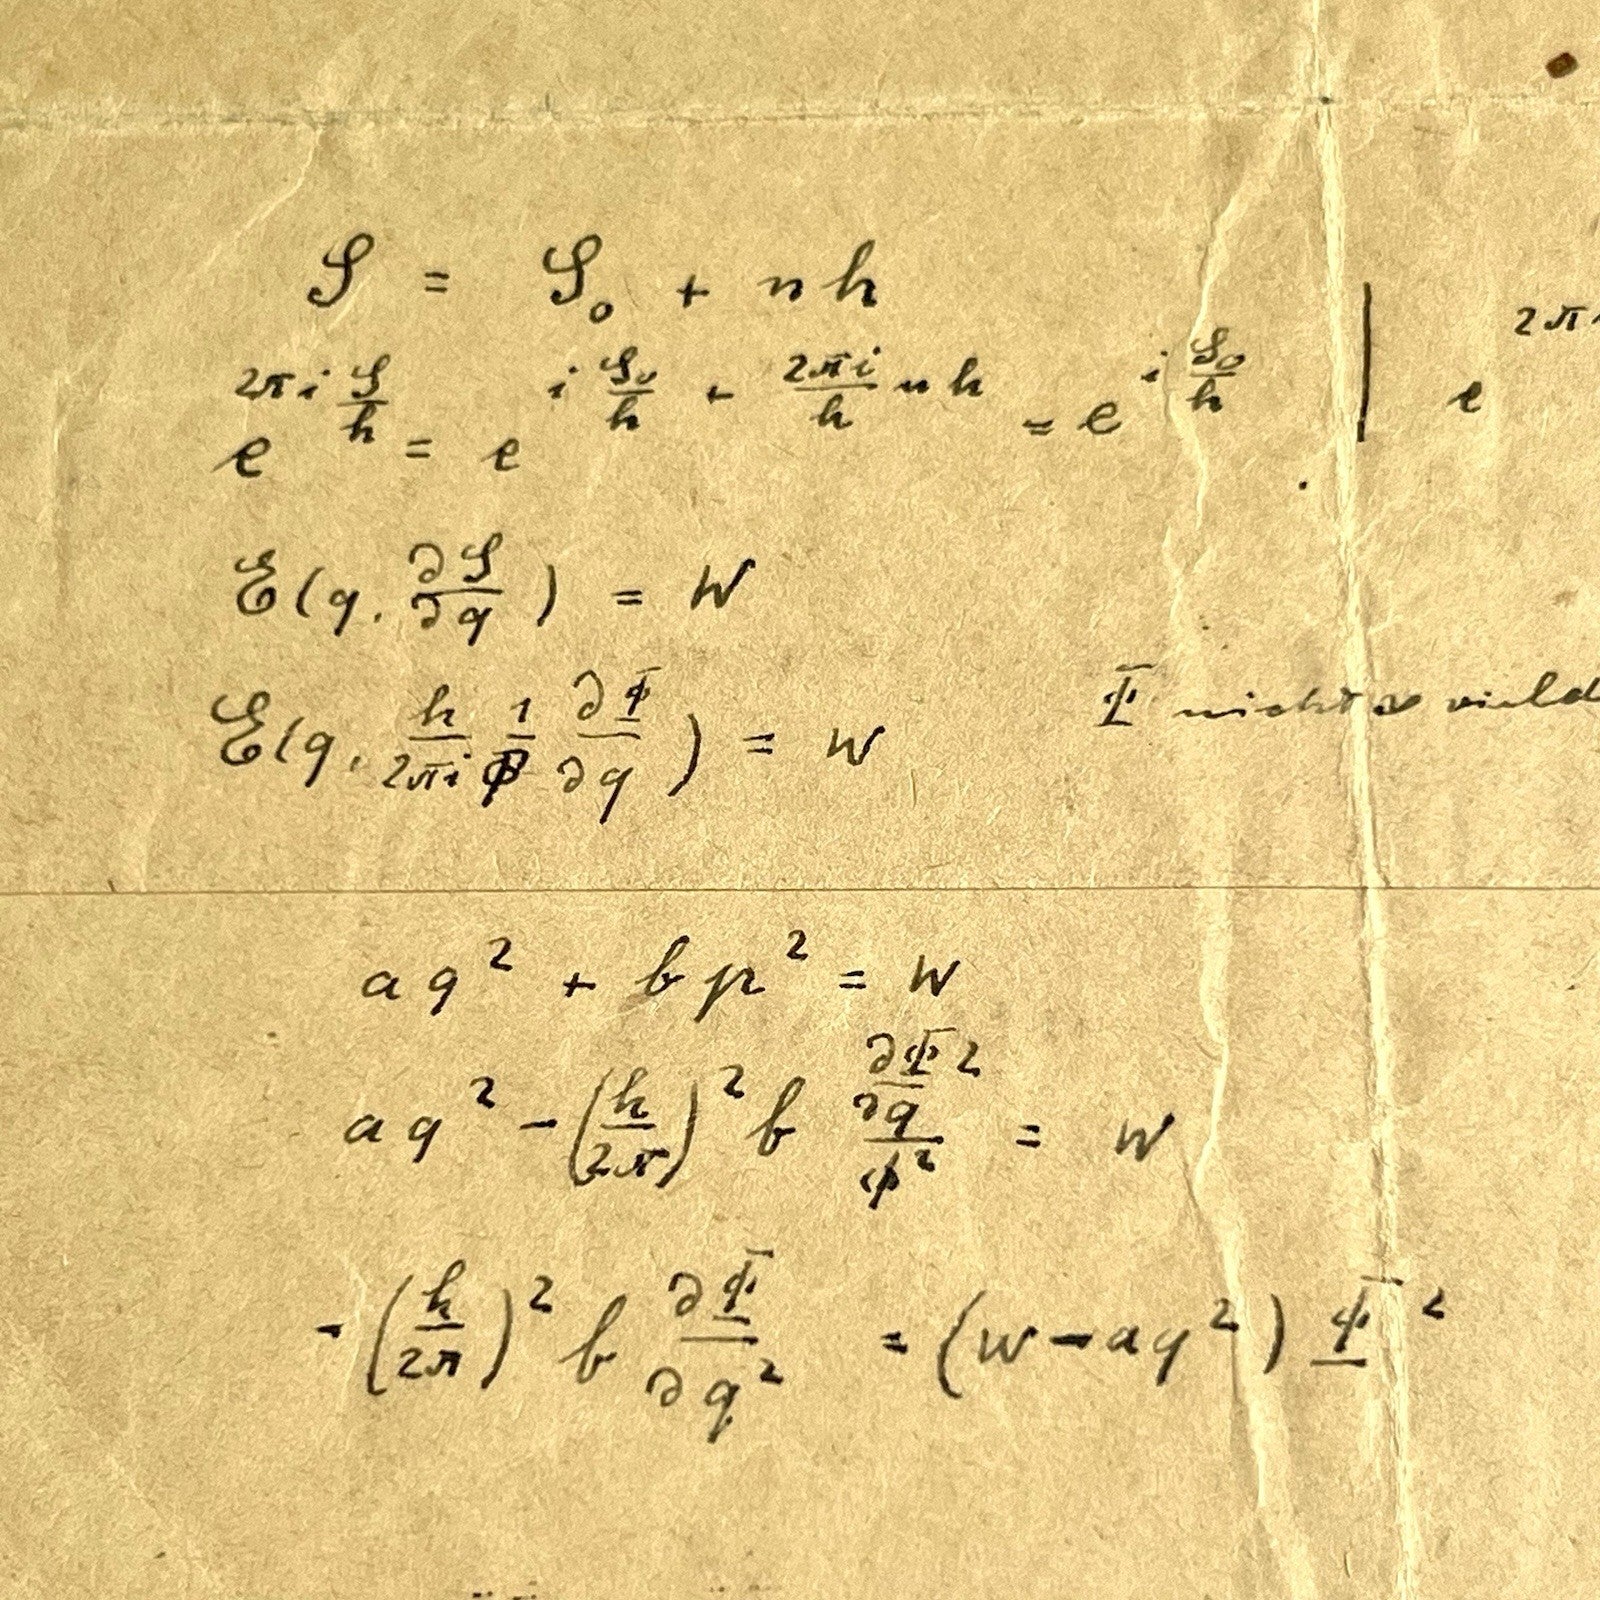 S = S₀ + n h
e^{2πi S/h} = e^{i S₀/h + 2πi/h n h} = e^{i S₀/h} | e^{2π
E(q, ∂S/∂q) = W
E(q, h/2πi 1/Φ ∂Φ/∂q) = W Φ nicht
a q² + b p² = W
a q² − (h/2π)² b (∂Φ/∂q ²)/Φ² = W
− (h/2π)² b ∂Φ/∂q² = (W − a q²) Φ²